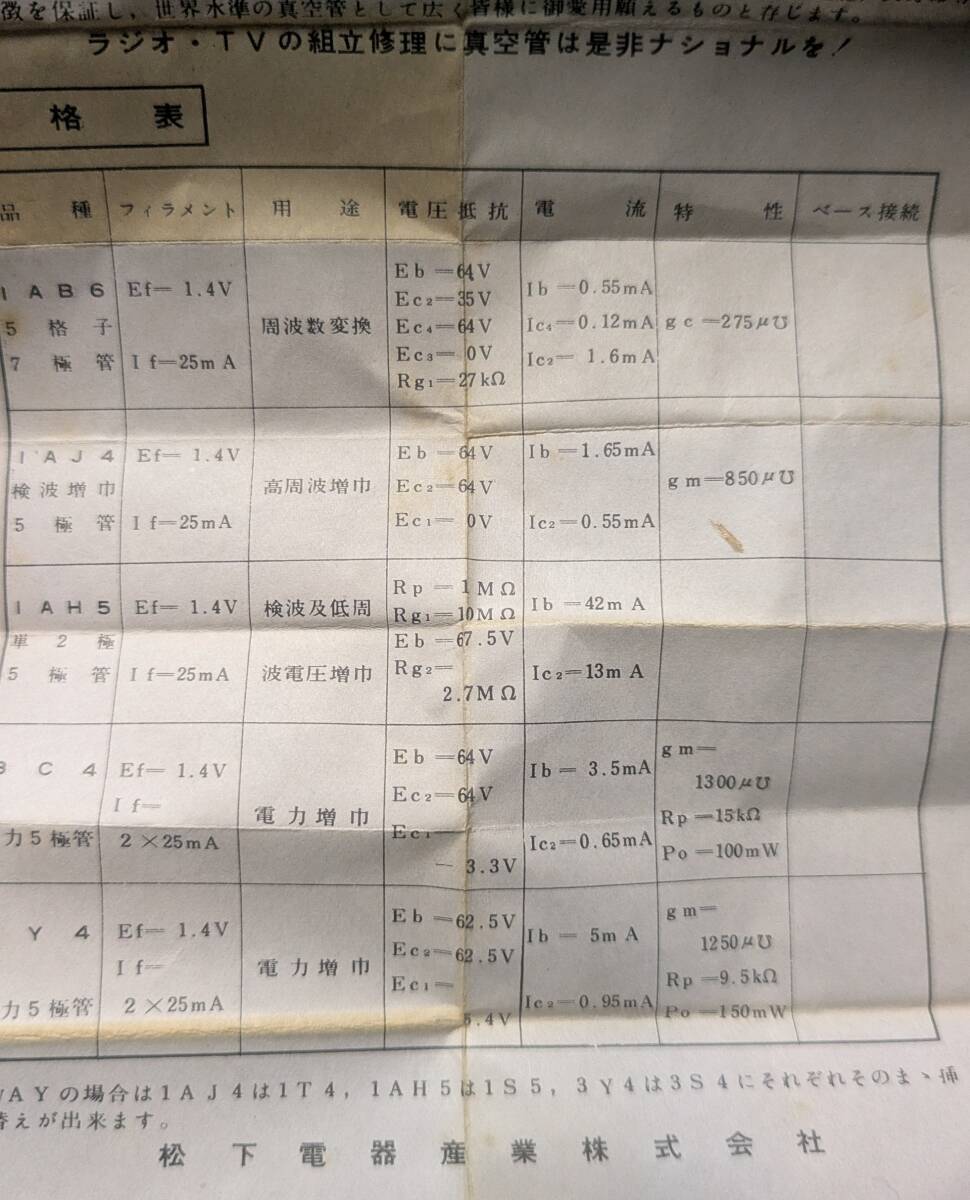 徴を保証し、世界水準の真空管として広く皆様に御愛用願えるものと存じます。
ラジオ・TVの組立修理に真空管は是非ナショナルを!
格表
品種 フィラメント 用途 電圧抵抗 電流 特性 ベース接続
1AB6
5格子
7極管
Ef=1.4V
If=25mA
周波数変換
Eb=64V
Ec2=35V
Ec4=64V
Ec3=0V
Rg1=27kΩ
Ib=0.55mA
Ic4=0.12mA
Ic2=1.6mA
gc=275μ℧
1AJ4
検波増巾
5極管
Ef=1.4V
If=25mA
高周波増巾
Eb=64V
Ec2=64V
Ec1=0V
Ib=1.65mA
Ic2=0.55mA
gm=850μ℧
1AH5
単2極
5極管
Ef=1.4V
If=25mA
検波及低周
波電圧増巾
Rp=1MΩ
Rg1=10MΩ
Eb=67.5V
Rg2=
2.7MΩ
Ib=42mA
Ic2=13mA
C4
力5極管
Ef=1.4V
If=
2×25mA
電力増巾
Eb=64V
Ec2=64V
Ec1=
-3.3V
Ib=3.5mA
Ic2=0.65mA
gm=
1300μ℧
Rp=15kΩ
Po=100mW
Y4
力5極管
Ef=1.4V
If=
2×25mA
電力増巾
Eb=62.5V
Ec2=62.5V
Ec1=
.4V
Ib=5mA
Ic2=0.95mA
gm=
1250μ℧
Rp=9.5kΩ
Po=150mW
WAYの場合は1AJ4は1T4,1AH5は1S5,3Y4は3S4にそれぞれそのまゝ挿
替えが出来ます。
松下電器産業株式会社